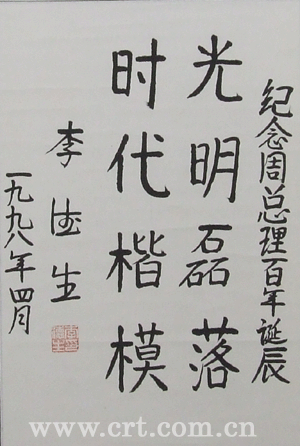 纪念周总理百年诞辰
光明磊落
时代楷模
李德生
一九九八年四月
www.crt.com.cn